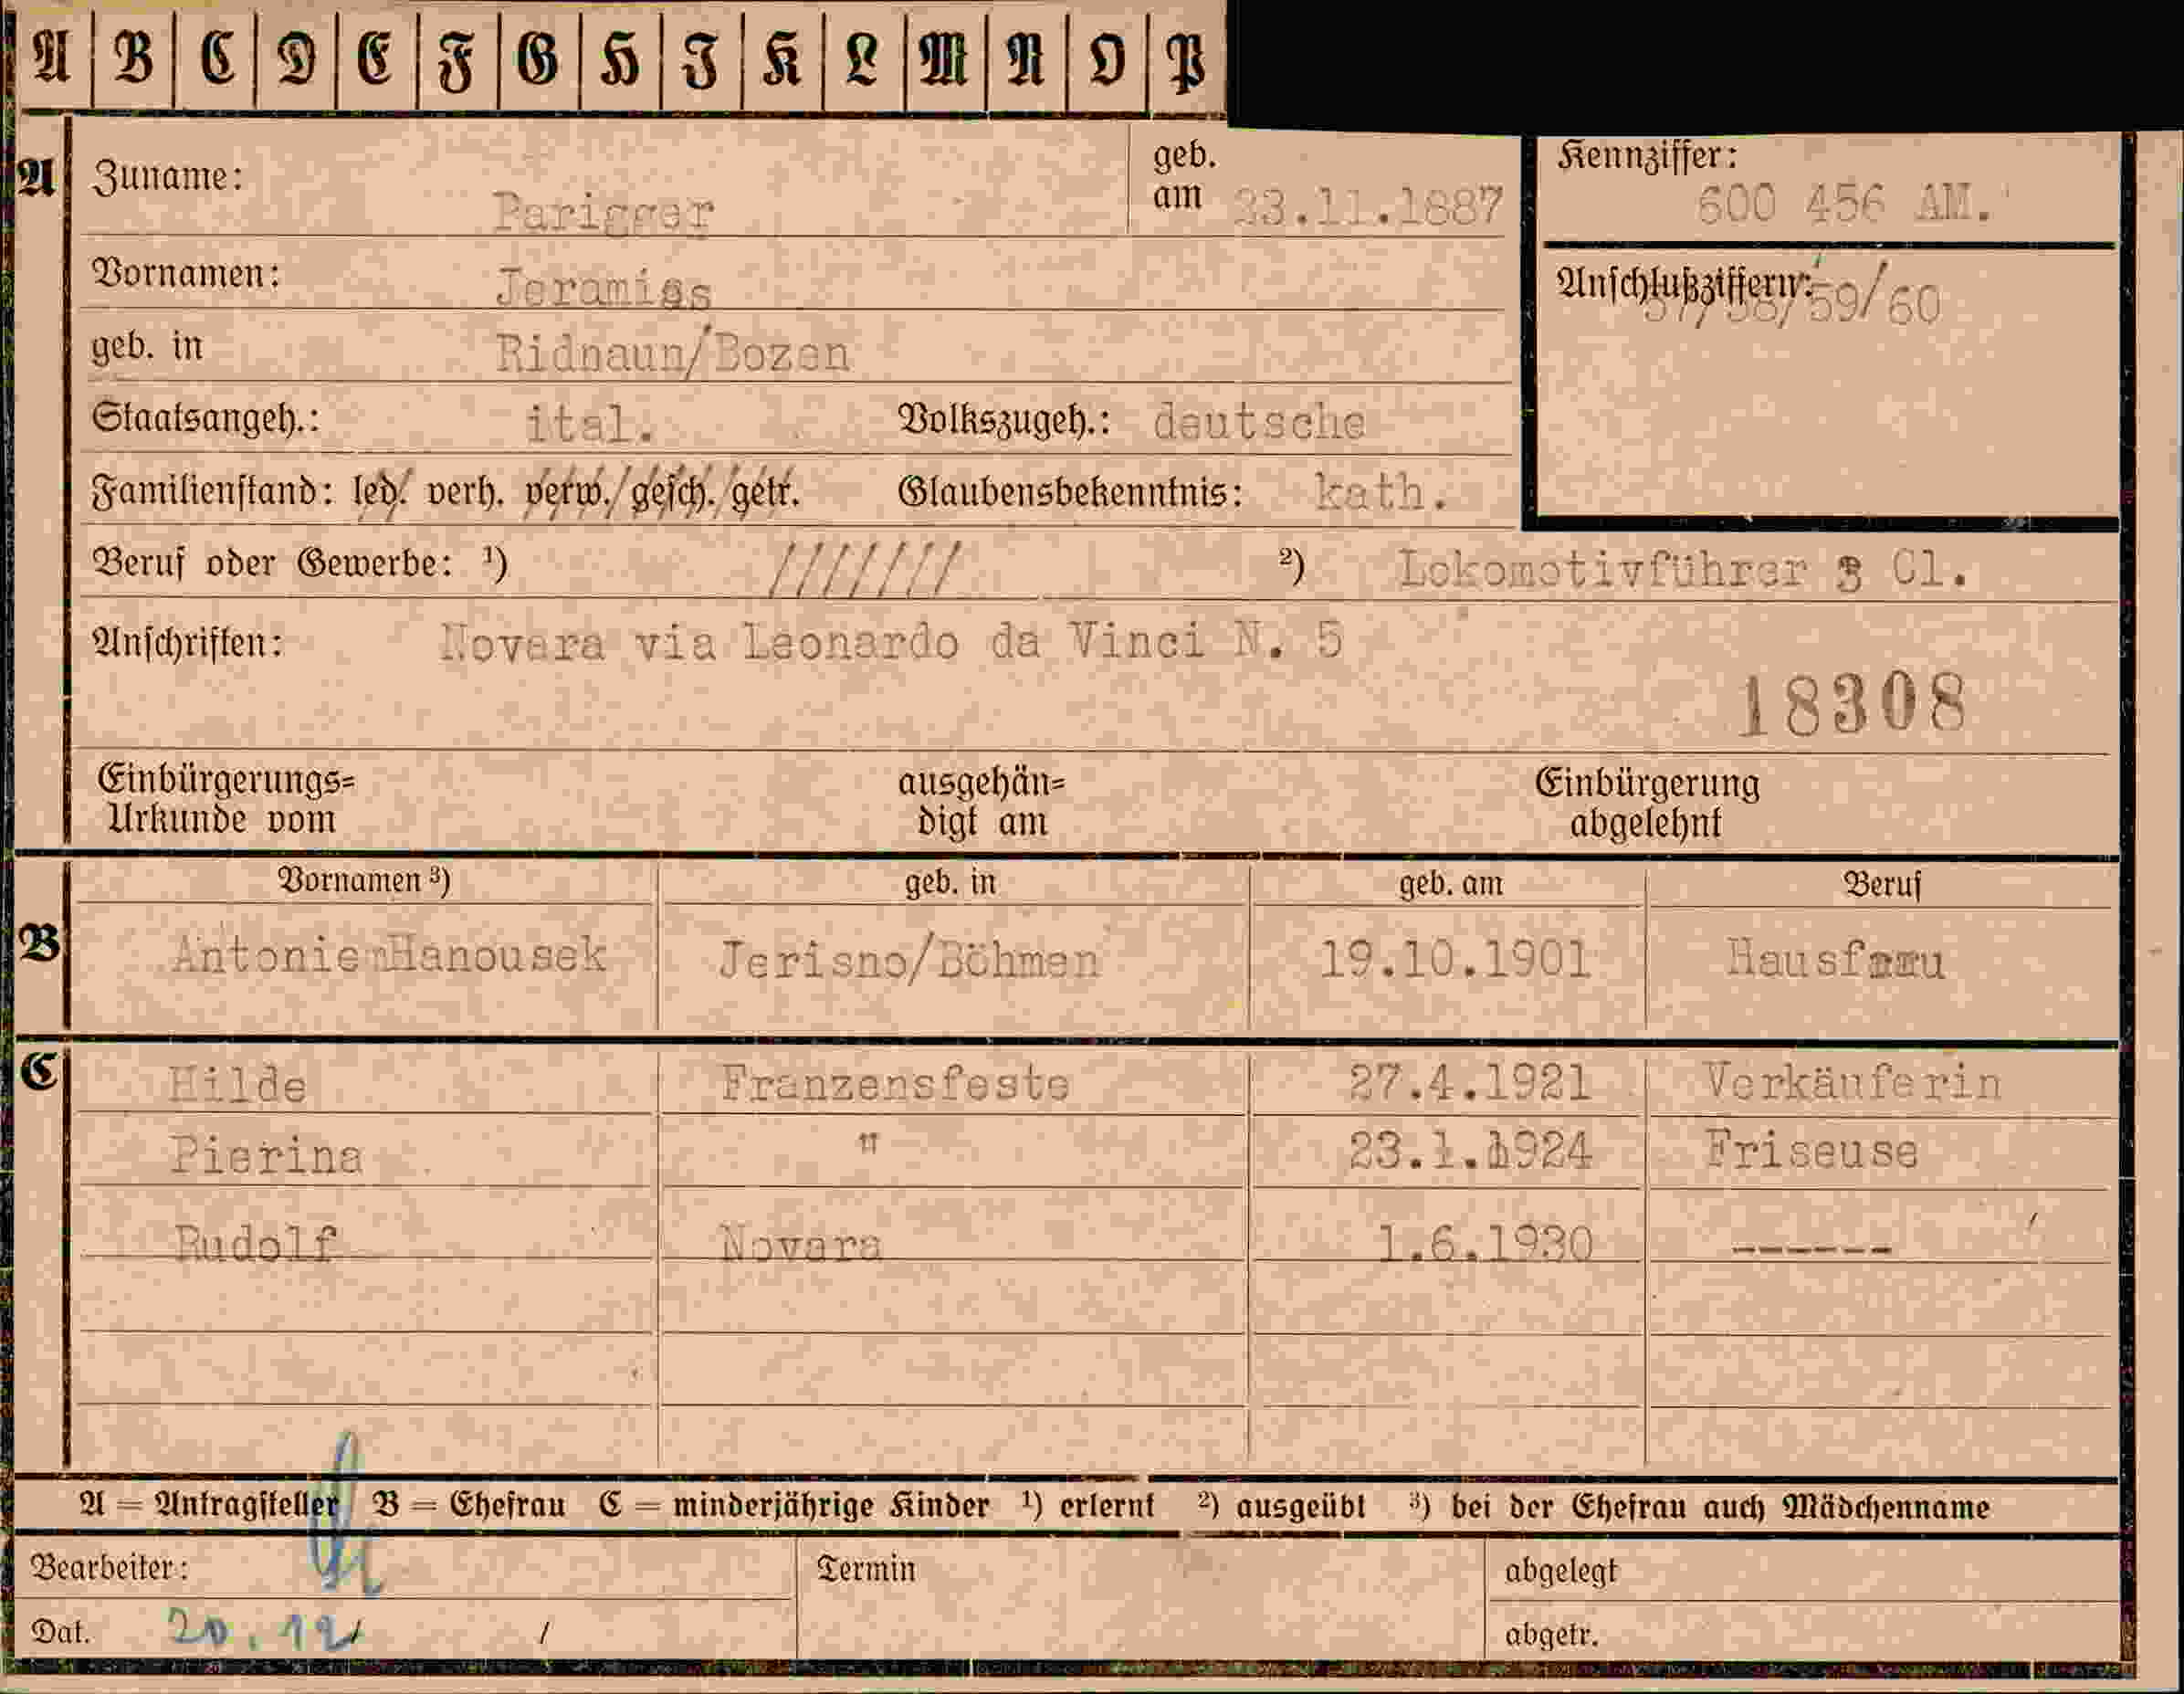 A B C D E F G H I K L M N O P
A Zuname: Parigger geb. am 23.11.1887 Kennziffer: 600 456 AM.
Vornamen: Jeramias Anschlußziffern: 57/58/59/60
geb. in Ridnaun/Bozen
Staatsangeh.: ital. Volkszugeh.: deutsche
Familienstand: led. verh. verw. gesch. getr. Glaubensbekenntnis: kath.
Beruf oder Gewerbe: ¹) /////// ²) Lokomotivführer 3 Cl.
Anschriften: Novara via Leonardo da Vinci N. 5
18308
Einbürgerungs= ausgehän= Einbürgerung
Urkunde vom digt am abgelehnt
Vornamen ³) geb. in geb. am Beruf
B Antonie Hanousek Jerisno/Böhmen 19.10.1901
C Hilde Franzensfeste 27.4.1921 Verkäuferin
Pierina " 23.1.1924 Friseuse
Rudolf Novara 1.6.1930 ------
A = Antragsteller B = Ehefrau C = minderjährige Kinder ¹) erlernt ²) ausgeübt ³) bei der Ehefrau auch Mädchenname
Bearbeiter: Termin abgelegt
Dat. 20.12/ / abgetr.